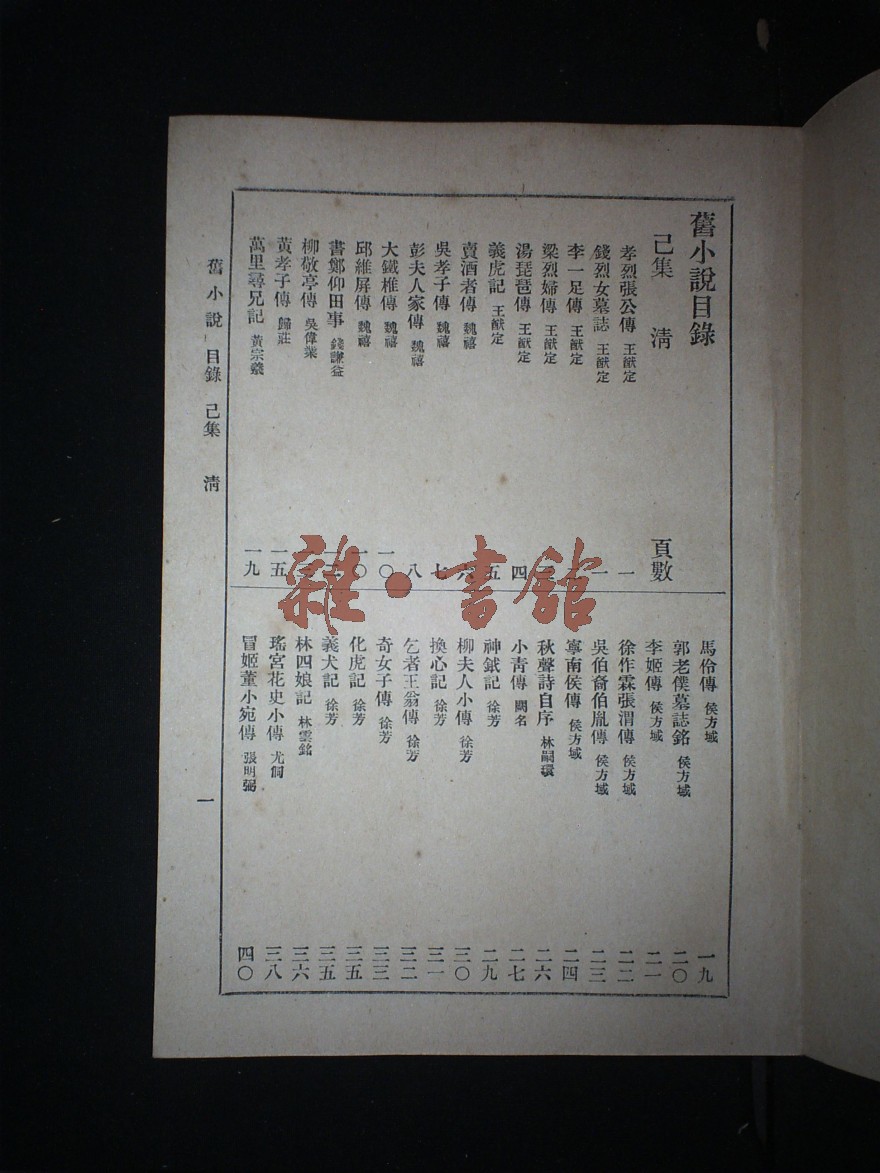 舊小說目錄
己集 清 頁數
孝烈張公傳 王猷定 一
錢烈女墓誌 王猷定 一
李一足傳 王猷定
梁烈婦傳 王猷定
湯琵琶傳 王猷定 四
義虎記 王猷定 五
賣酒者傳 魏禧 六
吳孝子傳 魏禧 七
彭夫人家傳 魏禧 八
大鐵椎傳 魏禧 一〇
邱維屏傳 魏禧 一〇
書鄭仰田事 錢謙益
柳敬亭傳 吳偉業
黃孝子傳 歸莊 一五
萬里尋兄記 黃宗羲 一九
馬伶傳 侯方域 一九
郭老僕墓誌銘 侯方域 二〇
李姬傳 侯方域 二一
徐作霖張渭傳 侯方域 二二
吳伯裔伯胤傳 侯方域 二三
寧南侯傳 侯方域 二四
秋聲詩自序 林嗣環 二六
小青傳 闕名 二七
神鉞記 徐芳 二九
柳夫人小傳 徐芳 三〇
換心記 徐芳 三一
乞者王翁傳 徐芳 三二
奇女子傳 徐芳 三三
化虎記 徐芳 三五
義犬記 徐芳 三五
林四娘記 林雲銘 三六
瑤宮花史小傳 尤侗 三八
冒姬董小宛傳 張明弼 四〇
舊小說 目錄 己集 清 一
雜·書館